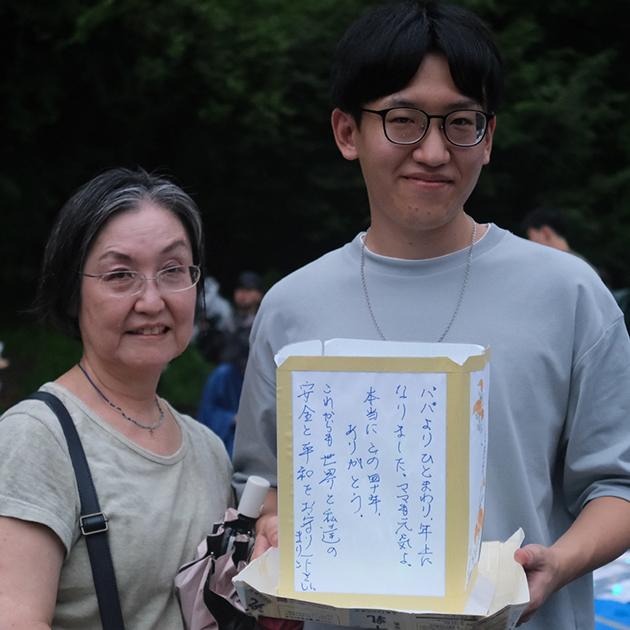 パパよりひとまわり、年上に
なりました、ママも元気よ、
本当にこの四十年、
ありがとう。
これからも世界と私達の
安全と平和をお守り下さい
まりこ